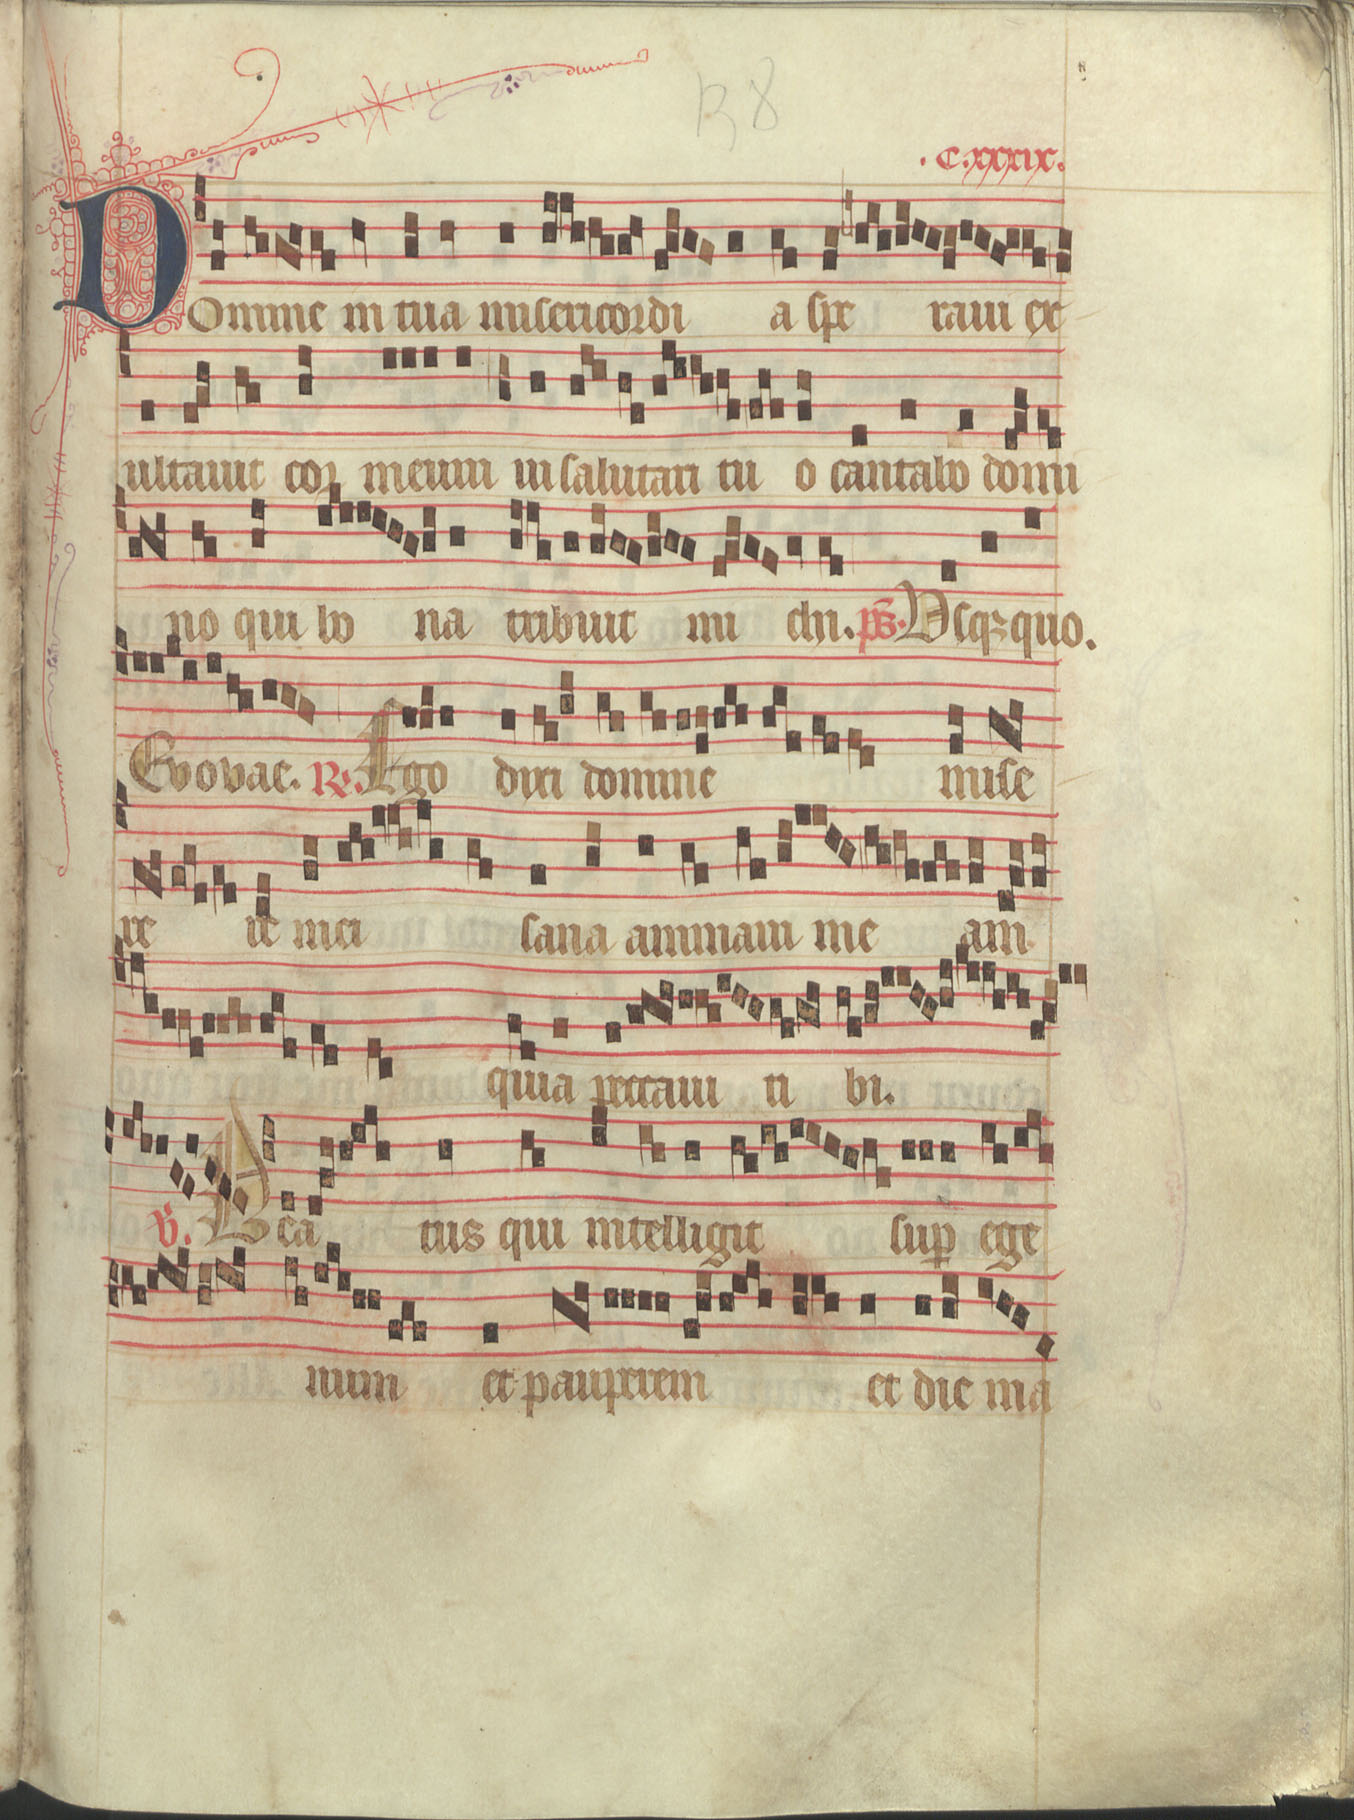 138
.C.xxxix.
Domine in tua misericordi a spe raui ex
ultauit cor meum in salutari tu o cantabo domi
no qui bo na tribuit mi chi. ps. Vsqz quo.
Euouae. R. Ego dixi domine mise
re re mei sana animam me am
quia peccaui ti bi.
V. Bea tus qui intelligit sup ege
num et pauperem et die ma